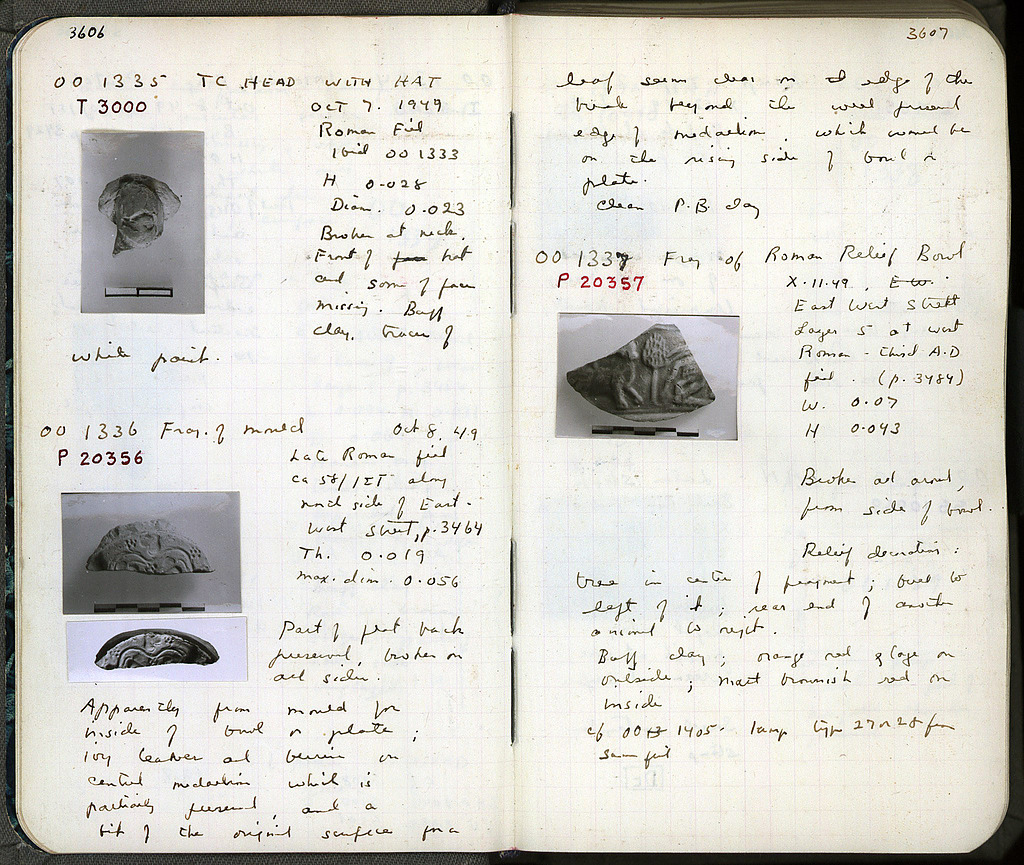 3606
OO 1335 TC HEAD WITH HAT
T 3000 OCT 7. 1949
Roman Fill
Ibid OO 1333
H 0.028
Diam. 0.023
Broken at neck.
Front of hat
and some of face
missing. Buff
clay, traces of
white paint.
OO 1336 Frag. of mould Oct 8, 49
P 20356
Late Roman fill
ca 58/ΙΣΤ along
north side of East-
West Street, p. 3464
Th. 0.019
max. dim. 0.056
Part of flat back
preserved, broken on
all sides.
Apparently from mould for
inside of bowl or plate;
ivy leaves and berries on
central medallion which is
partially preserved, and a
bit of the original surface for a
3607
leaf seems clear on the edge of the
break beyond the well preserved
edge of medallion, which would be
on the rising side of bowl or
plate.
Clean P.B. clay
OO 1337 Frag of Roman Relief Bowl
P 20357
X.11.49. E-W.
East West Street
Layer 5 at west
Roman - third A.D.
fill. (p. 3484)
W. 0.07
H 0.043
Broken all around,
from side of bowl.
Relief decoration:
tree in center of fragment; to
left of it; rear end of another
animal to right.
Buff clay; orange red glaze on
outside; matt brownish red on
inside
cf OO 1405. lamp type 27 or 28 from
same fill